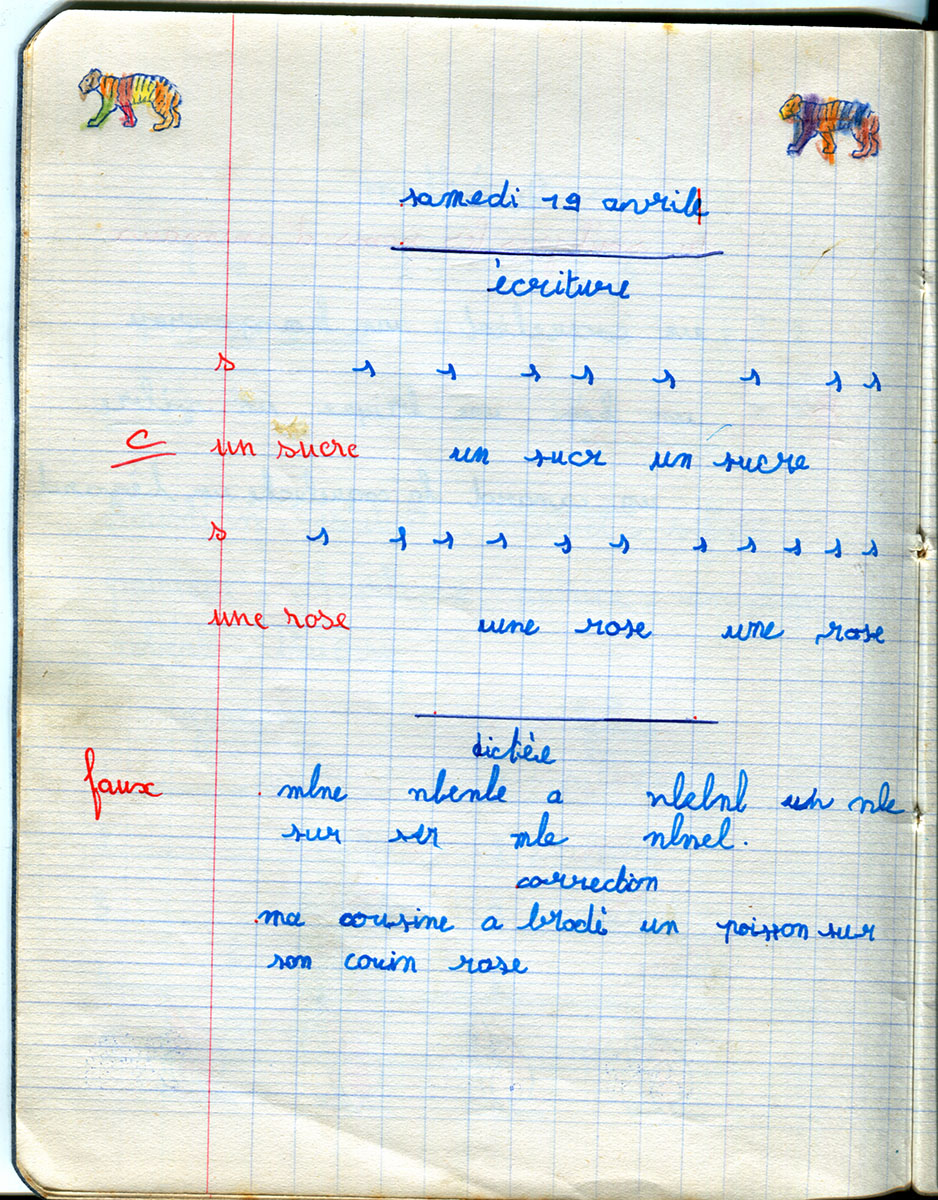 samedi 19 avrile
écriture
s s s s s s s s s
C un sucre un sucr un sucre
s s s s s s s s s s s s
une rose une rose une rose
dictée
faux mlne nlenle a nlelnl un nle
sur ser mle nlnel.
correction
ma cousine a brodé un poisson sur
son couin rose